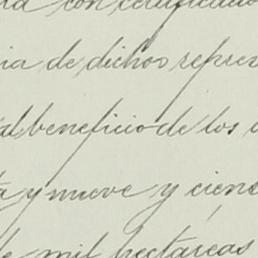 con certificado
ia de dichos repres
al beneficio de los
y nueve y cien
de mil hectáreas